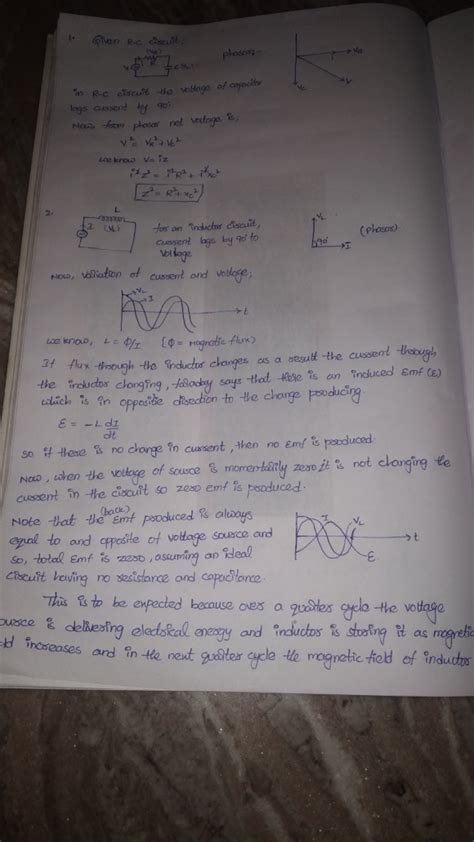 1. Given R-C circuit, phasors-
(VR)
R
V
C (Vc)
VR
V
Vc
in R-C circuit the voltage of capacitor
lags current by 90°
Now from phasor net voltage is,
V² = VR² + Vc²
we know V = iZ
i²Z² = i²R² + i²Xc²
Z² = R² + Xc²
2.
L
I (VL)
for an inductor circuit,
current lags by 90° to
Voltage
VL
90° I
(Phasor)
Now, variation of current and voltage,
VL I
t
we know, L = Φ/I {Φ = Magnetic flux)
If flux through the inductor changes as a result the current through
the inductor changing, faraday says that there is an induced Emf (ε)
which is in opposite direction to the change producing.
ε = -L dI/dt
so if there is no change in current, then no Emf is produced.
Now, when the voltage of source is momentarily zero, it is not changing the
current in the circuit so zero emf is produced.
Note that the (back) Emf produced is always
equal to and opposite of voltage source and
so, total Emf is zero, assuming an ideal
circuit having no resistance and capacitance.
I VL
t
ε
This is to be expected because over a quarter cycle the voltage
source is delivering electrical energy and inductor is storing it as magnetic
increases and in the next quarter cycle the magnetic field of inductor